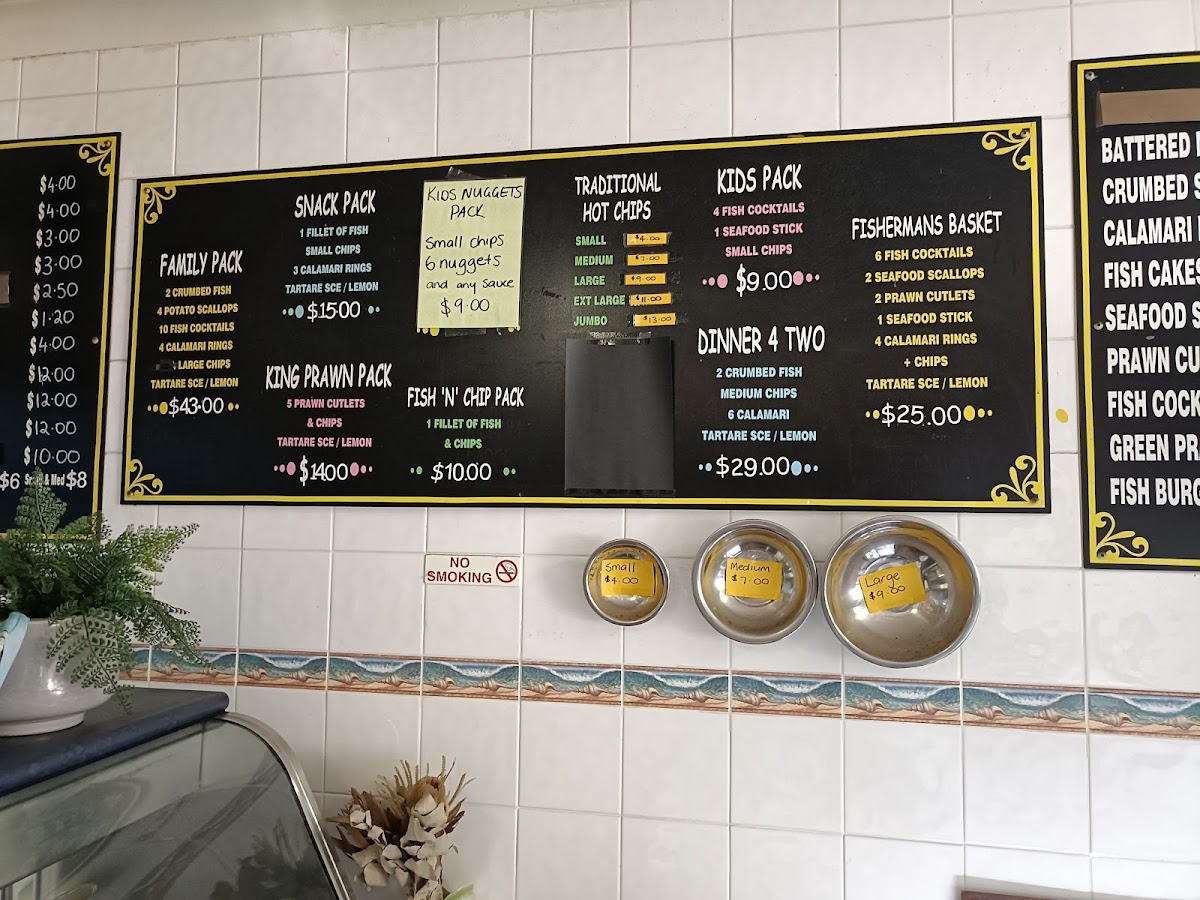 $4.00
$4.00
$3.00
$3.00
$2.50
$1.20
$4.00
$12.00
$12.00
$12.00
$10.00
$6 & Med $8
FAMILY PACK
2 CRUMBED FISH
4 POTATO SCALLOPS
10 FISH COCKTAILS
4 CALAMARI RINGS
LARGE CHIPS
TARTARE SCE / LEMON
$43.00
SNACK PACK
1 FILLET OF FISH
SMALL CHIPS
3 CALAMARI RINGS
TARTARE SCE / LEMON
$15.00
KING PRAWN PACK
5 PRAWN CUTLETS
& CHIPS
TARTARE SCE / LEMON
$14.00
KIDS NUGGETS
PACK
Small chips
6 nuggets
and any sauce
$9.00
FISH 'N' CHIP PACK
1 FILLET OF FISH
& CHIPS
$10.00
TRADITIONAL
HOT CHIPS
SMALL $4.00
MEDIUM $7.00
LARGE $9.00
EXT LARGE $11.00
JUMBO $13.00
KIDS PACK
4 FISH COCKTAILS
1 SEAFOOD STICK
SMALL CHIPS
$9.00
DINNER 4 TWO
2 CRUMBED FISH
MEDIUM CHIPS
6 CALAMARI
TARTARE SCE / LEMON
$29.00
FISHERMANS BASKET
6 FISH COCKTAILS
2 SEAFOOD SCALLOPS
2 PRAWN CUTLETS
1 SEAFOOD STICK
4 CALAMARI RINGS
+ CHIPS
TARTARE SCE / LEMON
$25.00
BATTERED
CRUMBED S
CALAMARI
FISH CAKES
SEAFOOD S
PRAWN CU
FISH COCK
GREEN PRA
FISH BURG
NO
SMOKING
Small
$4.00
Medium
$7.00
Large
$9.00